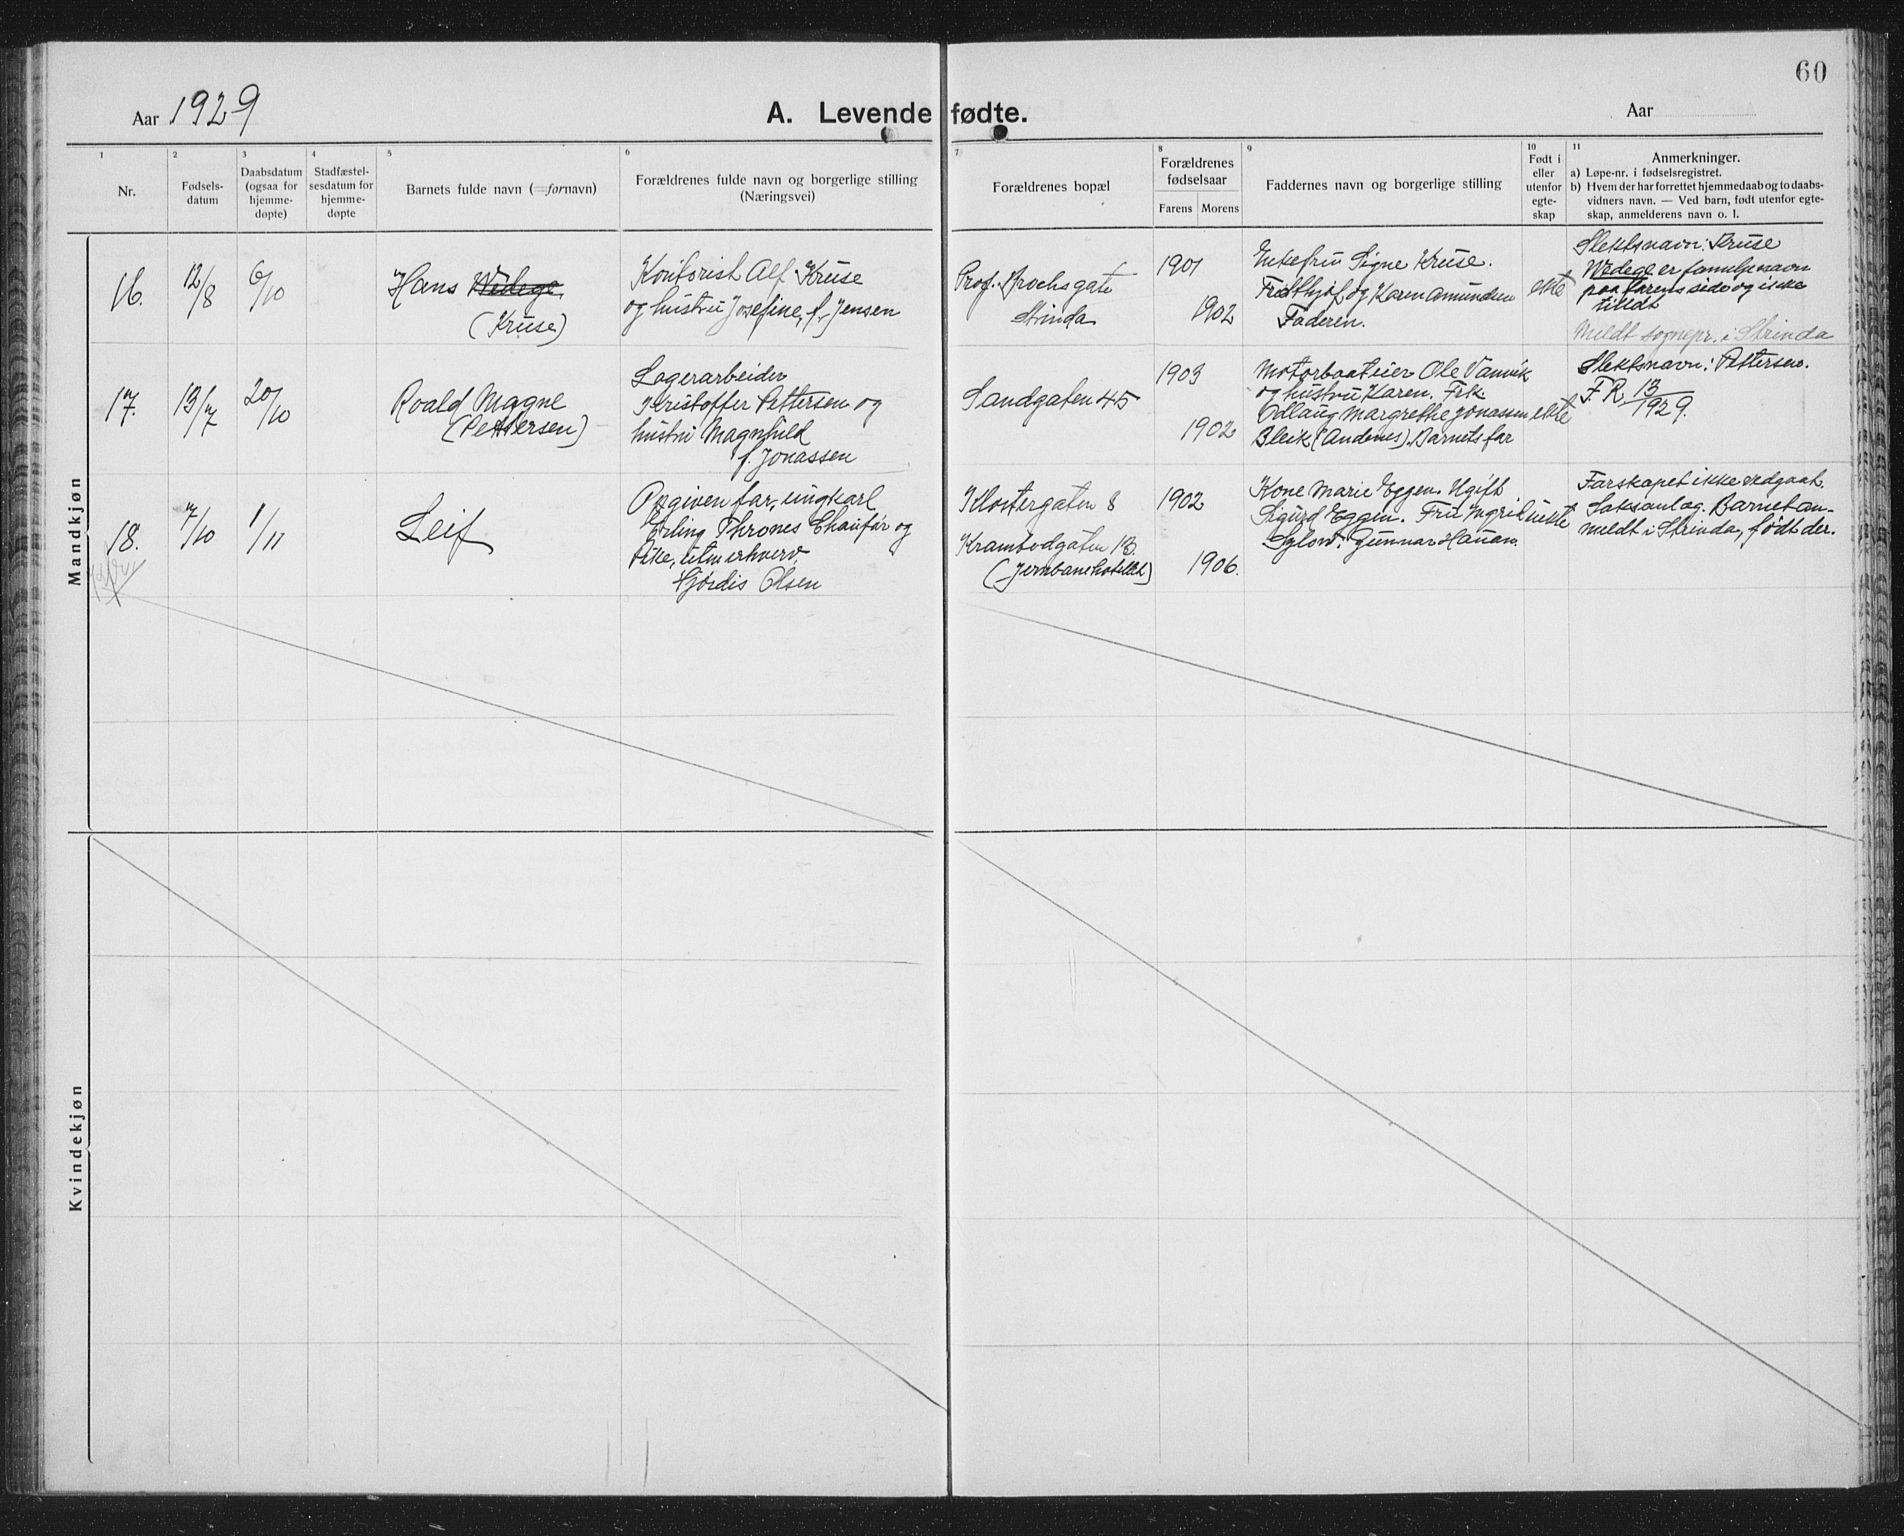 60
Aar 1929
A. Levende fødte.
Aar
1 2 3 4 5 6 7 8 9 10 11
Nr.
Fødsels-
datum
Daabsdatum
(ogsaa for
hjemme-
døpte)
Stadfæstel-
sesdatum for
hjemme-
døpte
Barnets fulde navn (=fornavn)
Forældrenes fulde navn og borgerlige stilling
(Næringsvei)
Forældrenes bopæl
Forældrenes
fødselsaar
Farens Morens
Faddernes navn og borgerlige stilling
Født i
eller
utenfor
egte-
skap
Anmerkninger.
a) Løpe-nr. i fødselsregistret.
b) Hvem der har forrettet hjemmedaab og to daabs-
vidners navn. — Ved barn, født utenfor egte-
skap, anmelderens navn o. l.
Mandkjøn
16.
12/8
6/10
Hans Wedege
(Kruse)
Kontorist Alf Kruse
og hustru Josefine, f. Jensen
Prof. Brochsgate
Strinda
1901
1902
Enkefru Signe Kruse.
Fridthjof og Karen Amundsen
Faderen.
ekte
Slektsnavn: Kruse
Wedege er familjenavn
paa farens side og ikke
tilldt
Meldt sognepr. i Strinda
17.
13/7
20/10
Roald Magne
(Pettersen)
Lagerarbeider
Kristoffer Pettersen og
hustru Magnhild
f. Jonassen
Sandgaten 45
1903
1902
Motorbaateier Ole Vannvik
og hustru Karen. Frk
Odlaug Margrethe Jonassen
Bleik (Andenes). Barnets far
ekte
Slektsnavn: Pettersen.
F. R. 13/1929.
18.
7/10
1/11
Leif
Opgiven far, ungkarl
Erling Thrones Chaufør og
Pike, uten erhverv
Hjørdis Olsen
Klostergaten 8
Krambodgaten 13.
(Jernbanehotellet)
1902
1906.
Kone Marie Eggen. Ugift
Sigurd Eggen. Fru Ingrid
Gunnar Hauan
uekte
Farskapet ikke vedgaat.
Saksanlag. Barnet an-
meldt i Strinda, født der.
Kvindekjøn